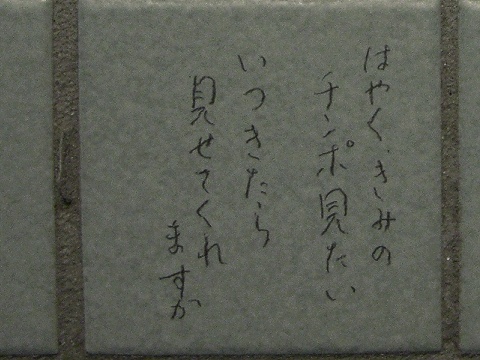 はやく、きみの
チンポ見たい
いつきたら
見せてくれ
ますか